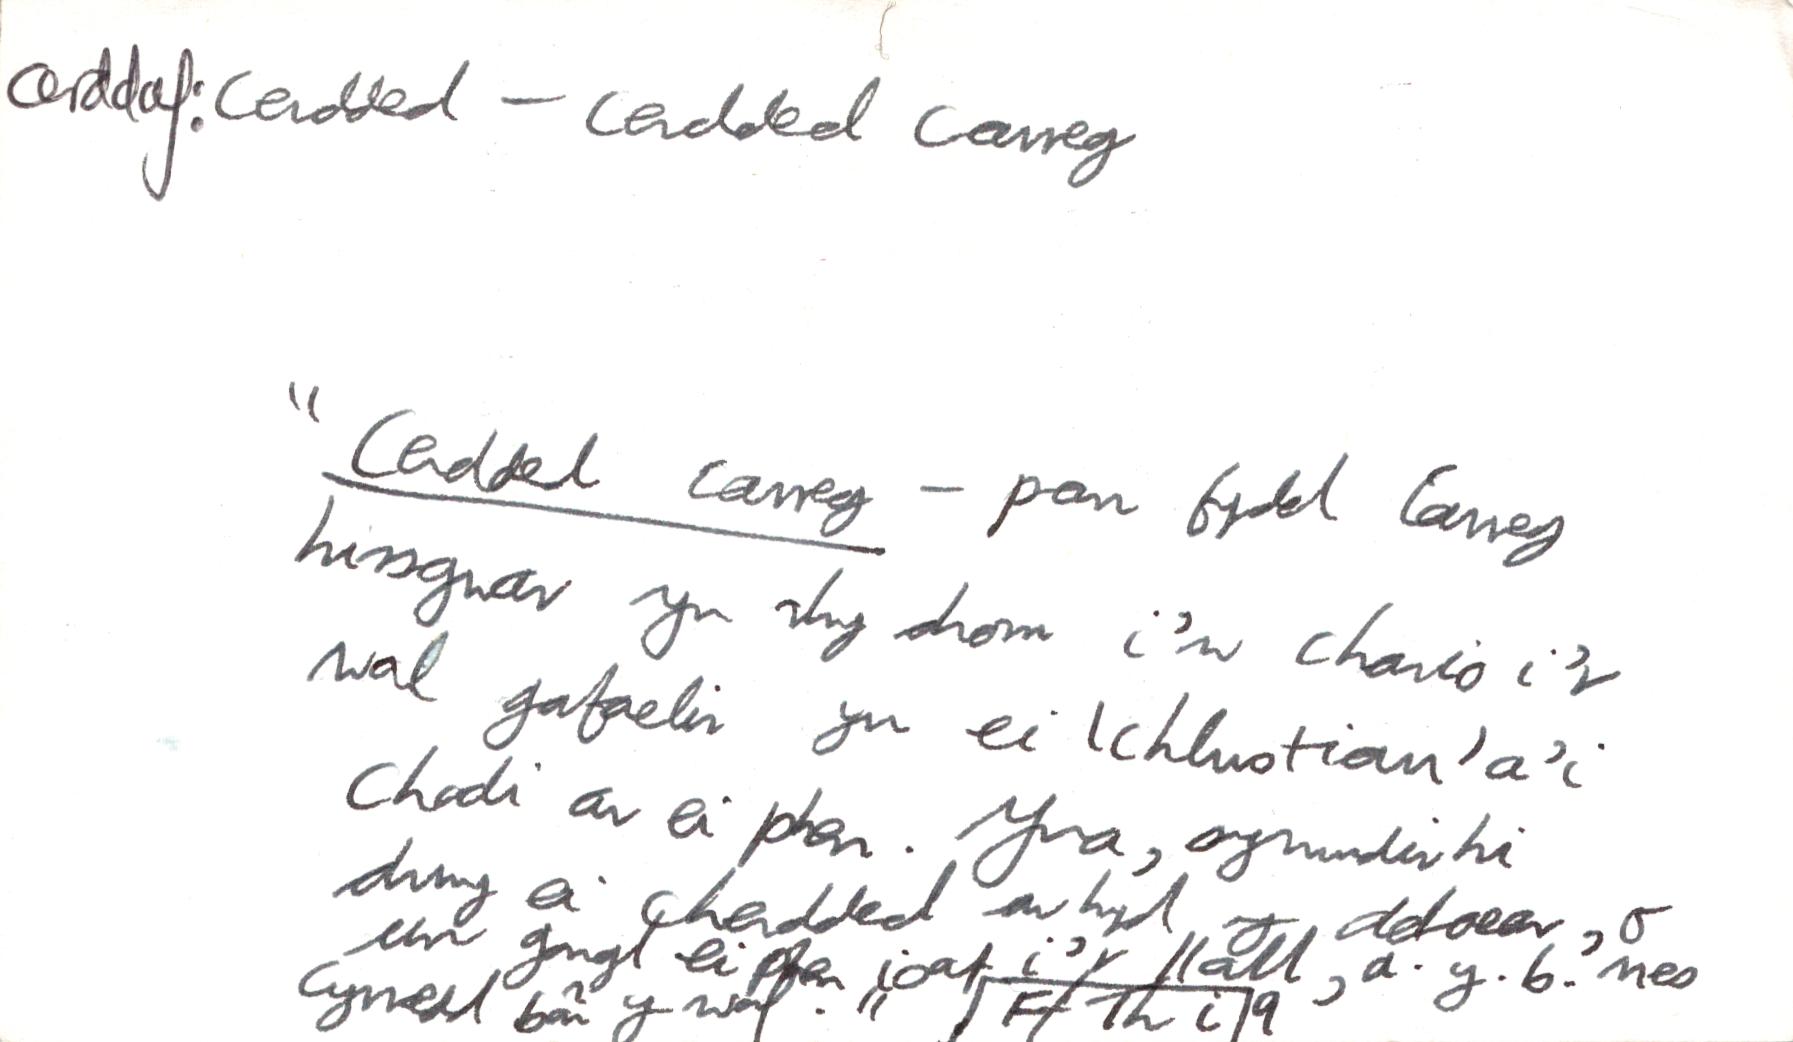 cerddaf: Cerdded — Cerdded Carreg
"Cerdded carreg — pan fydd Carreg
hirsgwar yn rhy drom i'w chario i'r
wal gafaelir yn ei 'chlustian' a'i
chodi ar ei phen. Yna, symudir hi
drwy ei cherdded ar hyd y ddaear, o
un gongl ei phen isaf i'r llall, a.y.b. nes
cyrredd bôn y wal."